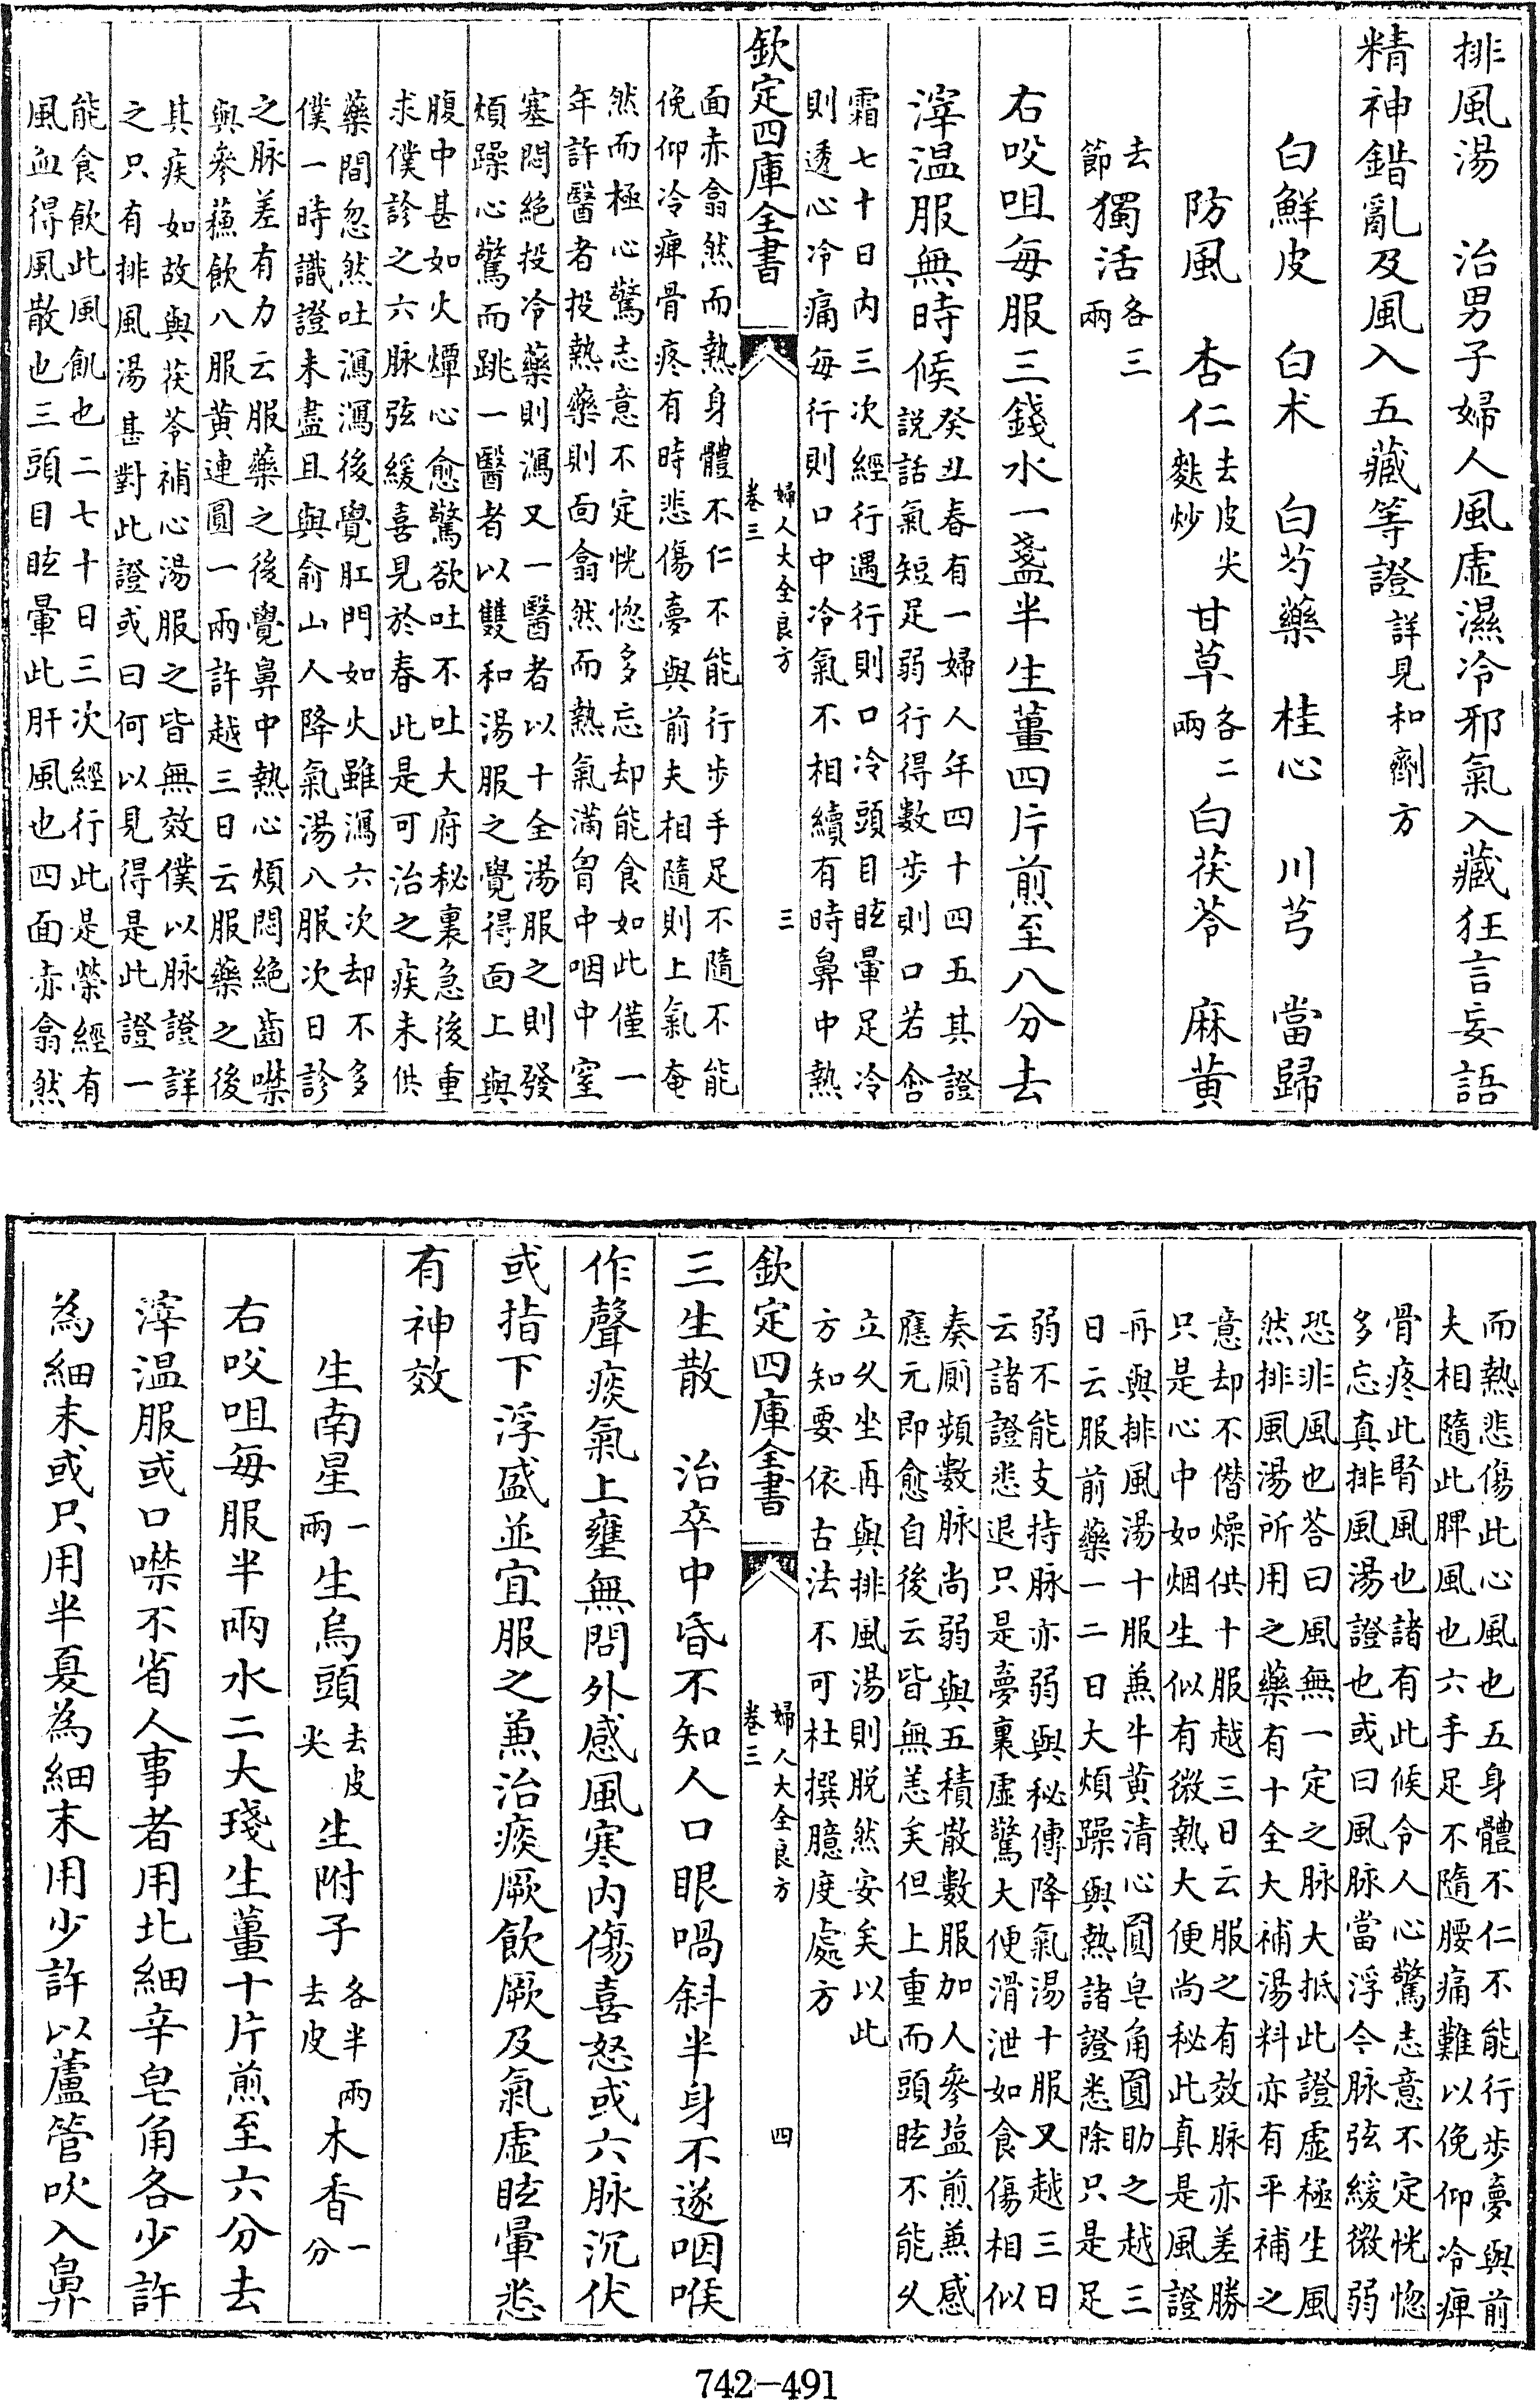 排風湯　治男子婦人風虛濕冷邪氣入藏狂言妄語
精神錯亂及風入五藏等證詳見和劑方
白鮮皮　白术　白芍藥　桂心　川芎　當歸
防風　杏仁去皮尖麩炒　甘草各二兩　白茯苓　麻黄
去節　獨活各三兩
右㕮咀每服三錢水一盞半生薑四片煎至八分去
滓温服無時候癸丑春有一婦人年四十四五其證
說話氣短足弱行得數步則口若含
霜七十日内三次經行遇行則口冷頭目眩暈足冷
則透心冷痛每行則口中冷氣不相續有時鼻中熱
欽定四庫全書　婦人大全良方　卷三　三
面赤翕然而熱身體不仁不能行步手足不隨不能
俛仰冷痺骨疼有時悲傷夢與前夫相隨則上氣奄
然而極心驚志意不定恍惚多忘却能食如此僅一
年許醫者投熱藥則面翕然而熱氣滿胷中咽中窒
塞悶絶投冷藥則瀉又一醫者以十全湯服之則發
煩躁心驚而跳一醫者以雙和湯服之覺得面上與
腹中甚如火㷋心愈驚欲吐不吐大府秘裏急後重
求僕診之六脉弦緩喜見於春此是可治之疾未供
藥間忽然吐瀉瀉後覺肛門如火雖瀉六次却不多
僕一時識證未盡且與俞山人降氣湯八服次日診
之脉差有力云服藥之後覺鼻中熱心煩悶絶齒噤
與參蘓飲八服黄連圓一兩許越三日云服藥之後
其疾如故與茯苓補心湯服之皆無效僕以脉證詳
之只有排風湯甚對此證或曰何以見得是此證一
能食飲此風飢也二七十日三次經行此是榮經有
風血得風散也三頭目眩暈此肝風也四面赤翕然
而熱悲傷此心風也五身體不仁不能行步夢與前
夫相隨此脾風也六手足不隨腰痛難以俛仰冷痺
骨疼此腎風也諸有此候令人心驚志意不定恍惚
多忘真排風湯證也或曰風脉當浮今脉弦緩微弱
恐非風也荅曰風無一定之脉大抵此證虛極生風
然排風湯所用之藥有十全大補湯料亦有平補之
意却不僭燥供十服越三日云服之有效脉亦差勝
只是心中如烟生似有微熱大便尚秘此真是風證
再與排風湯十服兼牛黄清心圓皂角圓助之越三
日云服前藥一二日大煩躁與熱諸證悉除只是足
弱不能支持脉亦弱與秘傳降氣湯十服又越三日
云諸證悉退只是夢裏虛驚大便滑泄如食傷相似
奏厠頻數脉尚弱與五積散數服加人參盐煎兼感
應元即愈自後云皆無恙矣但上重而頭眩不能乆
立乆坐再與排風湯則脱然安矣以此
方知要依古法不可杜撰臆度處方
欽定四庫全書　婦人大全良方　卷三　四
三生散　治卒中昏不知人口眼喎斜半身不遂咽喉
作聲痰氣上壅無問外感風寒内傷喜怒或六脉沉伏
或指下浮盛並宜服之兼治痰厥飲厥及氣虛眩暈悉
有神效
生南星一兩　生烏頭去皮尖　生附子各半兩去皮　木香一分
右㕮咀每服半兩水二大琖生薑十片煎至六分去
滓温服或口噤不省人事者用北細辛皂角各少許
為細末或只用半夏為細末用少許以蘆管吹入鼻
742-491